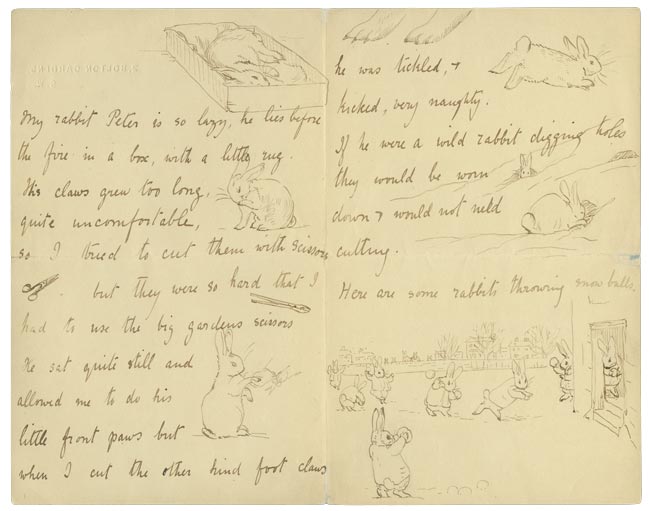 2, BOLTON GARDENS,
S.W.
My rabbit Peter is so lazy, he lies before
the fire in a box, with a little rug.
His claws grew too long,
quite uncomfortable,
so I tried to cut them with scissors
but they were so hard that I
had to use the big gardens scissors
He sat quite still and
allowed me to do his
little front paws but
when I cut the other hind foot claws
he was tickled, &
kicked, very naughty.
If he were a wild rabbit digging holes
they would be worn
down & would not need
cutting.
Here are some rabbits throwing snow balls.